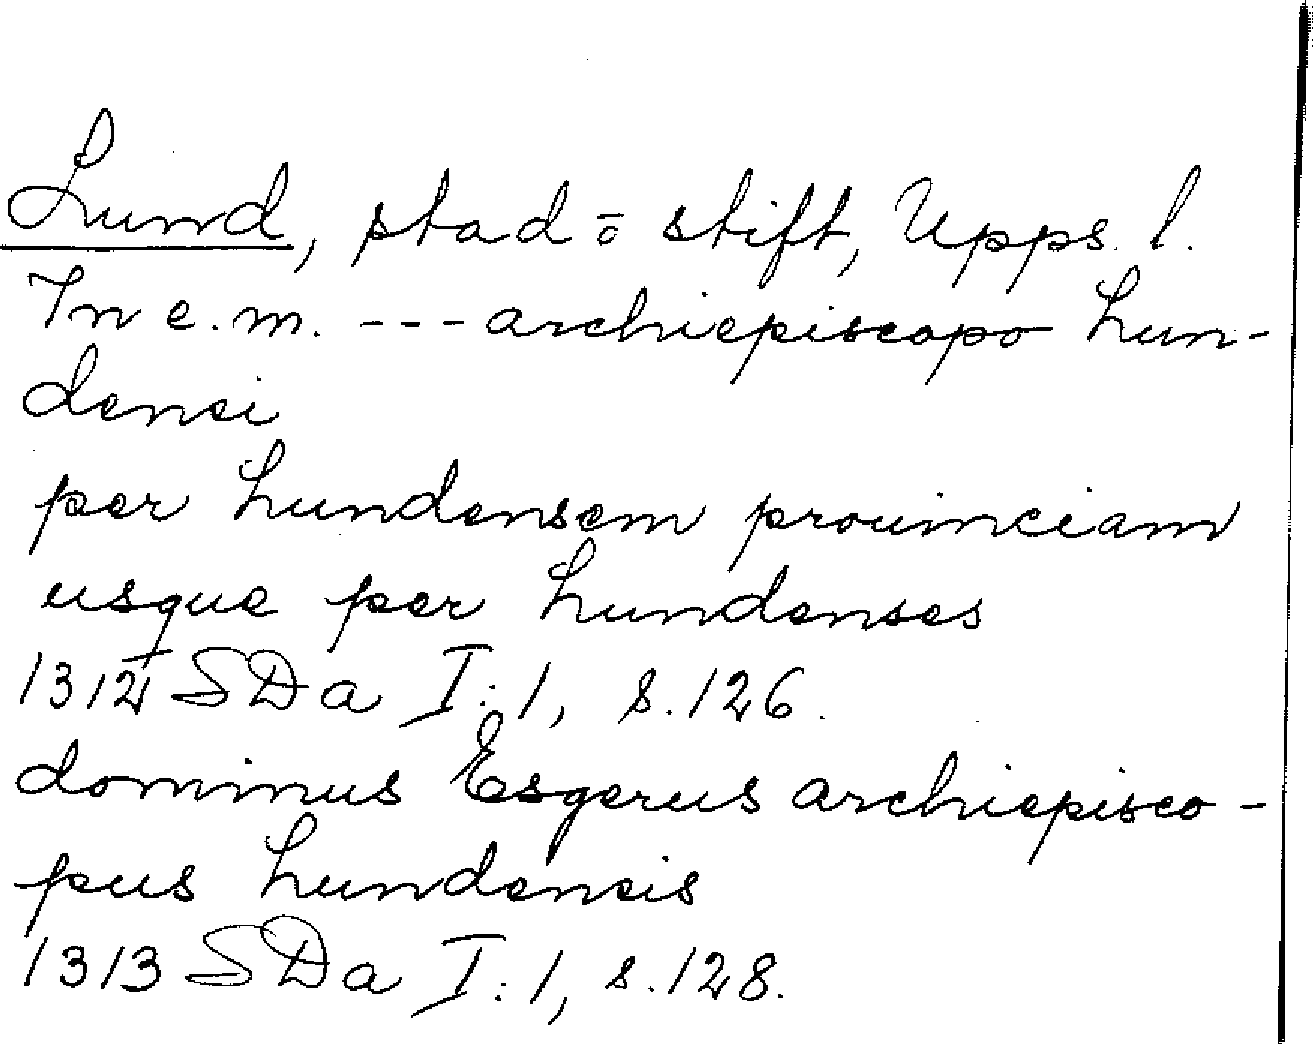 Lund, stad o stift, Upps. l.
In e.m. --- archiepiscopo Lun-
densi
per Lundensem prouinciam
usque per Lundenses
1312 SDa I:1, s.126.
dominus Esgerus archiepisco-
pus Lundensis
1313 SDa I:1, s.128.